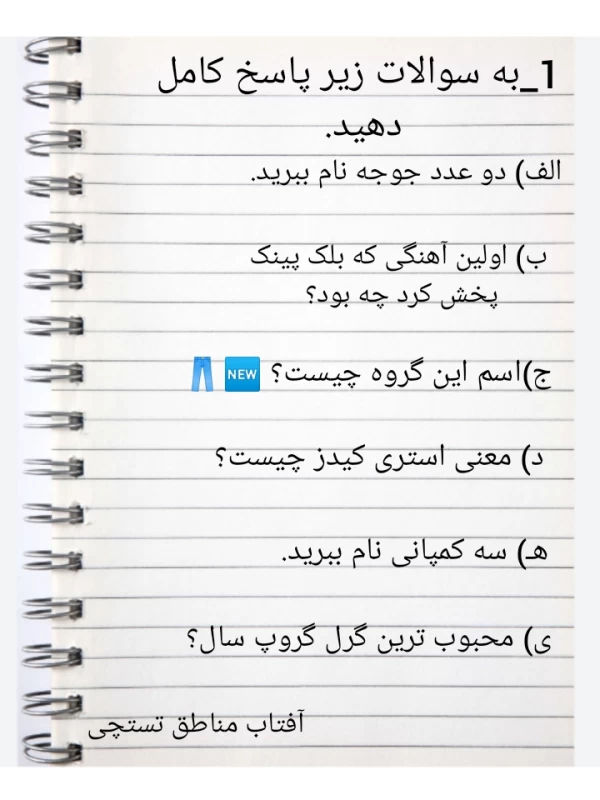 1_به سوالات زیر پاسخ کامل
دهید.
الف) دو عدد جوجه نام ببرید.
ب) اولین آهنگی که بلک پینک
پخش کرد چه بود؟
ج)اسم این گروه چیست؟ 🆕 👖
د) معنی استری کیدز چیست؟
هـ) سه کمپانی نام ببرید.
ی) محبوب ترین گرل گروپ سال؟
آفتاب مناطق تستچی